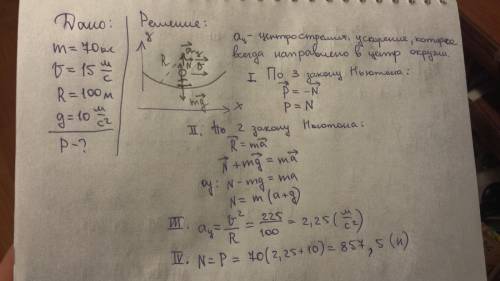 Дано:
m = 70 кг
v = 15 м/с
R = 100 м
g = 10 м/с²
P - ?
Решение:
y
R
a⃗ц
N⃗
v⃗
mg⃗
x
aц - центростремит. ускорение, которое
всегда направлено в центр окружн.
I. По 3 закону Ньютона:
P⃗ = -N⃗
P = N
II. По 2 закону Ньютона:
R⃗ = ma⃗
N⃗ + mg⃗ = ma⃗
oy: N - mg = ma
N = m(a+g)
III. aц = v²/R = 225/100 = 2,25 (м/с²)
IV. N = P = 70(2,25+10) = 857,5 (н)